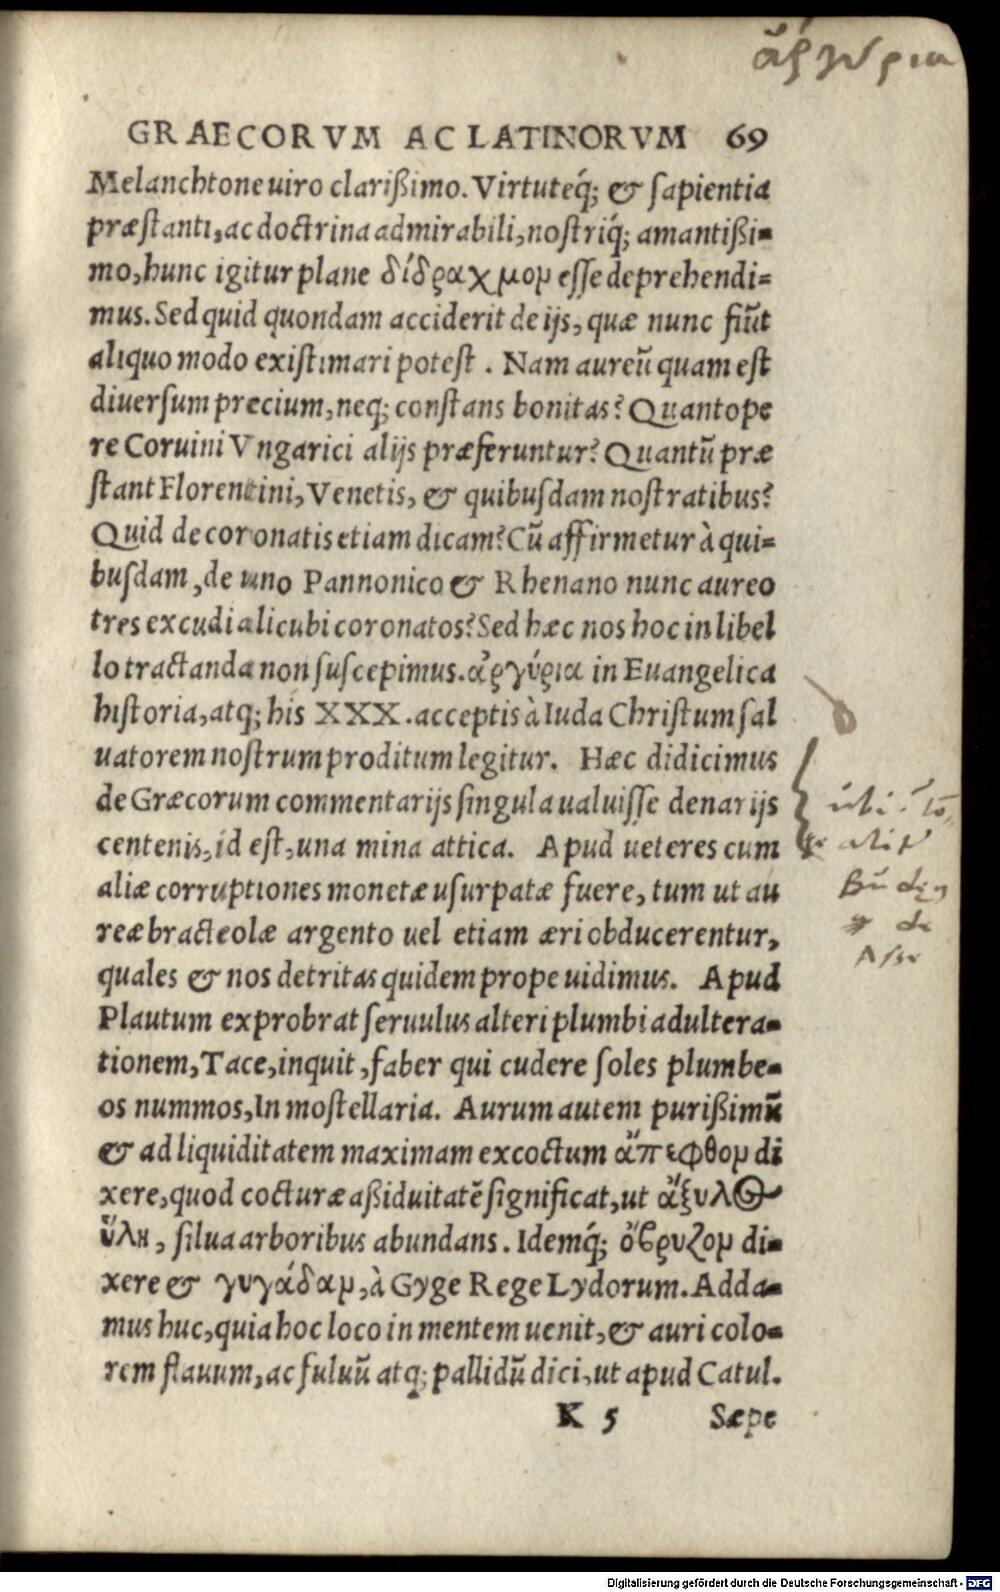 ἀργύρια
GRAECORVM AC LATINORVM 69
Melanchtone uiro clarißimo. Virtuteq́; & sapientia
præstanti, ac doctrina admirabili, nostriq́; amantißi-
mo, hunc igitur plane δίδραχμον esse deprehendi-
mus. Sed quid quondam acciderit de ijs, quæ nunc fiūt
aliquo modo existimari potest. Nam aureū quam est
diuersum precium, neq; constans bonitas? Quantope
re Coruini Vngarici alijs præferuntur? Quantū præ
stant Florentini, Venetis, & quibusdam nostratibus?
Quid de coronatis etiam dicam? Cū affirmetur à qui-
busdam, de uno Pannonico & Rhenano nunc aureo
tres excudi alicubi coronatos? Sed hæc nos hoc in libel
lo tractanda non suscepimus. ἀργύρια in Euangelica
historia, atq; his XXX. acceptis à Iuda Christum sal
uatorem nostrum proditum legitur. Hæc didicimus
de Græcorum commentarijs singula ualuisse denarijs
centenis, id est, una mina attica. Apud ueteres cum
aliæ corruptiones monetæ usurpatæ fuere, tum ut au
reæ bracteolæ argento uel etiam æri obducerentur,
quales & nos detritas quidem prope uidimus. Apud
Plautum exprobrat seruulus alteri plumbi adultera-
tionem, Tace, inquit, faber qui cudere soles plumbe-
os nummos, In mostellaria. Aurum autem purißimū
& ad liquiditatem maximam excoctum ἄπεφθον di
xere, quod cocturæ aßiduitatē significat, ut ἄξυλος
ὕλη, silua arboribus abundans. Idemq́; ὄβρυζον di-
xere & γυγάδαν, à Gyge Rege Lydorum. Adda-
mus huc, quia hoc loco in mentem uenit, & auri colo-
rem flauum, ac fuluū atq; pallidū dici, ut apud Catul.
K 5 Sæpe
Bude
de
Asse
Digitalisierung gefördert durch die Deutsche Forschungsgemeinschaft - DFG